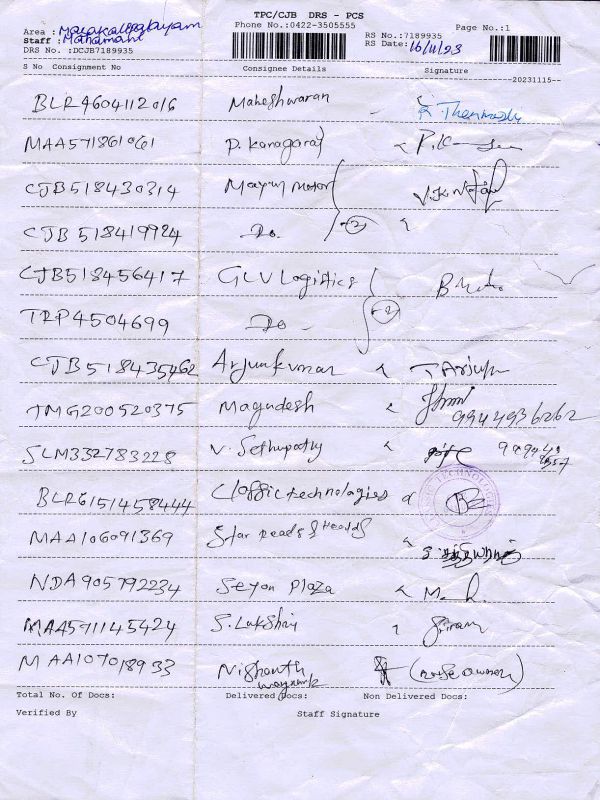 TPC/CJB DRS - PCS
Phone No.:0422-3505555
Page No.:1
Area :
Staff : Mahamani
RS No.:7189935
DRS No.:DCJB7189935
RS Date: 16/11/23
S No Consignment No Consignee Details Signature
20231115
BLR4604112016 Maheshwaran
MAA571861061 P. Kanagaraj
CJB518430314 Mayur Motor
CJB518419924 Do. 2
CJB518456417 GLV Logistics
TRP4504699 Do 2
CJB518435462 Arjunkumar T Arjun
TMG200520375 Magudesh 9944936262
SLM332783228 V. Sethupathy
BLR6151458444 Classic technologies
MAA106091369 Star Reads & Heads
NDA905792234 Seyon Plaza
MAA571145424 S. Lakshmi Sriram
MAA107018933 Nishanth
Total No. Of Docs: Delivered Docs: Non Delivered Docs:
Verified By Staff Signature